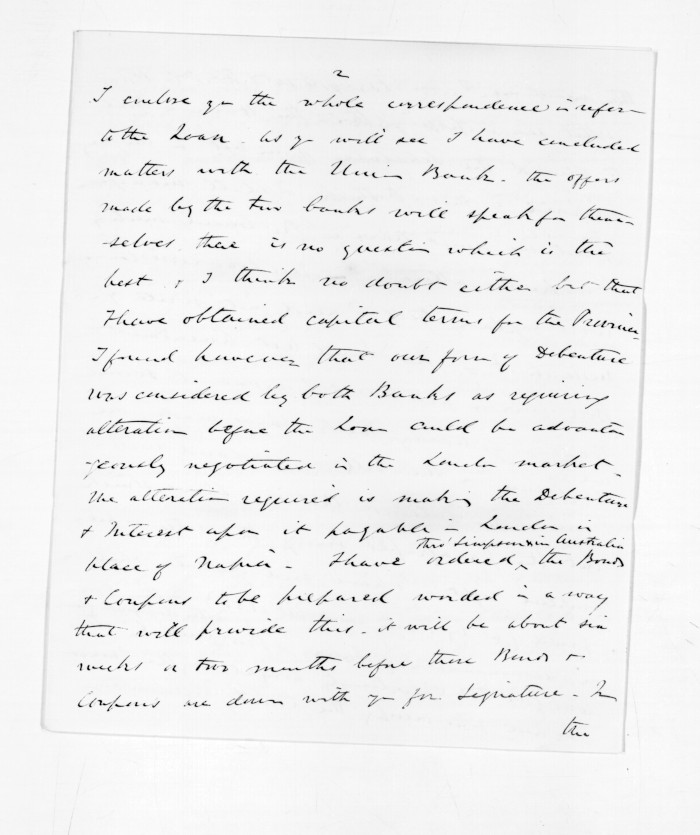 2
I enclose yo the whole correspondence in refern
to the Loan. As yo will see I have concluded
matters with the Union Bank. the offers
made by the two banks will speak for them
-selves. there is no question which is the
best & I think no doubt either but that
I have obtained capital terms for the Province.
I found however that our form of Debenture
was considered by both Banks as requiring
alteration before the Loan could be advanta
geously negotiated in the London market.
The alteration required is making the Debenture
& Interest upon it payable in London in
thro' Simpson in Australia
place of Napier. I have ordered ^ the Bonds
& Coupons to be prepared worded in a way
that will provide this. it will be about six
weeks or two months before these Bonds &
Coupons are down with yo for signature. In
the